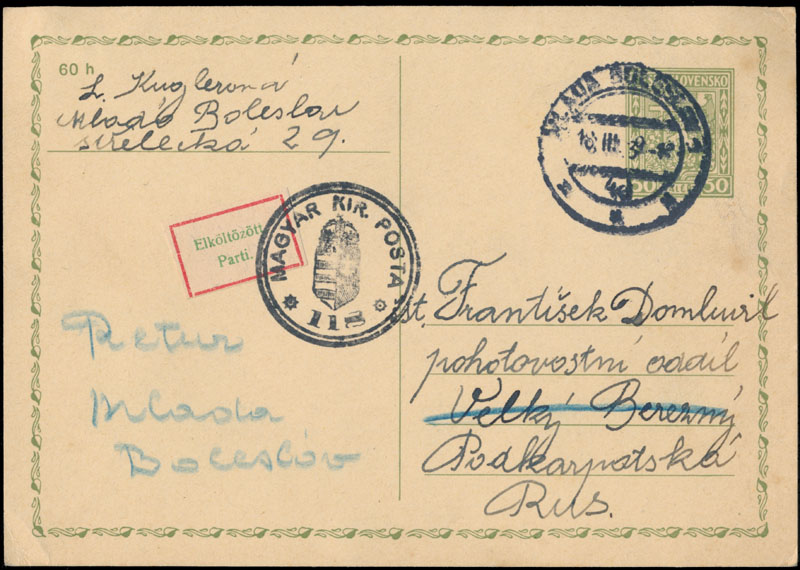 60 h
L. Kuglerová
Mladá Boleslav
střelecká 29.
MLADÁ BOLESLAV 1
16. III. 39-18
SLOVENSKO
50 50
Elköltözött
Parti.
MAGYAR KIR. POSTA
118
Retur
Mlada
Boleslov
st. František Domluvil
pohotovostní oddíl
Velký Berezný
Podkarpatská
Rus.